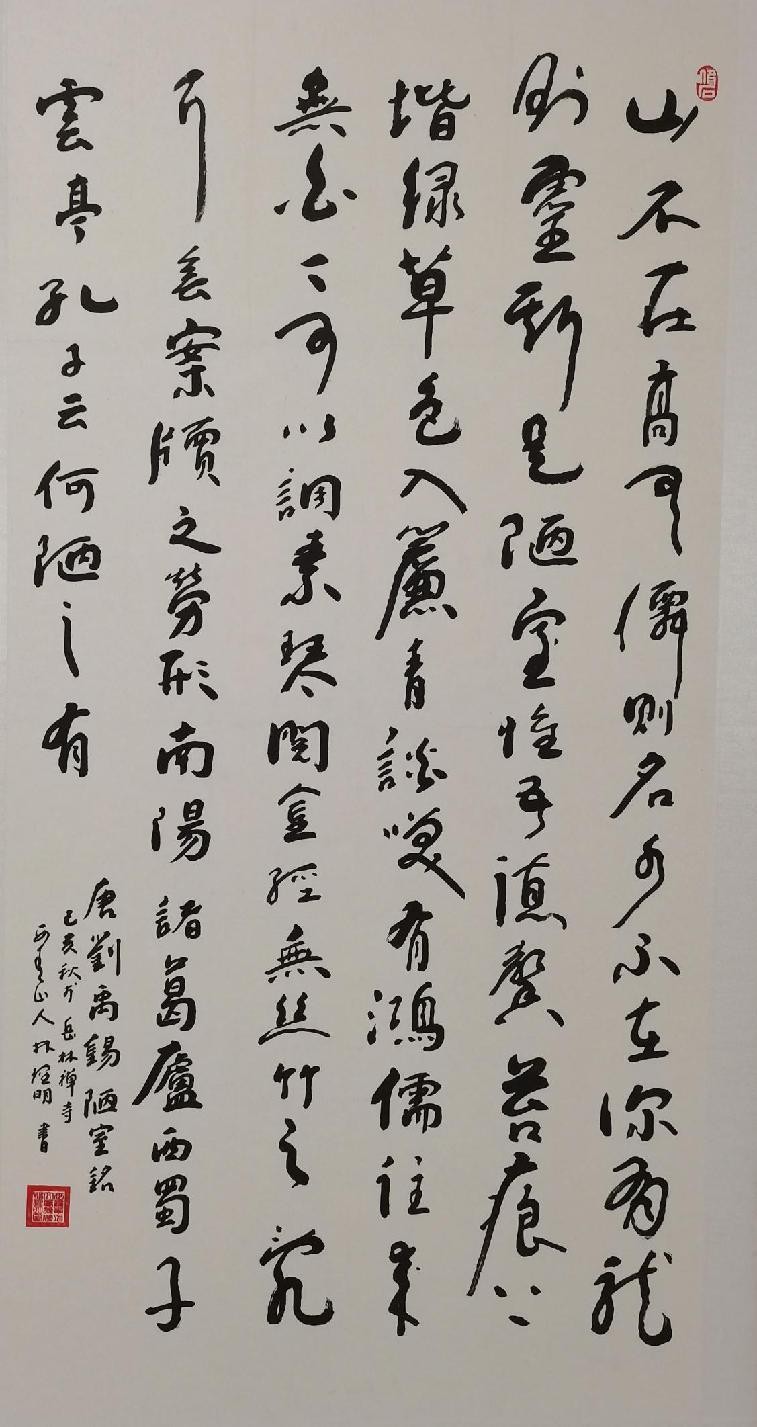 山不在高有僊则名水不在深有龍
則靈斯是陋室惟吾德馨苔痕上
堦绿草色入簾青談笑有鴻儒往来
無白丁可以調素琴閱金經無丝竹之亂
耳無案牘之勞形南陽諸葛廬西蜀子
雲亭孔子云何陋之有
唐劉禹錫陋室銘
己亥秋於岳林禅寺
山人林明書